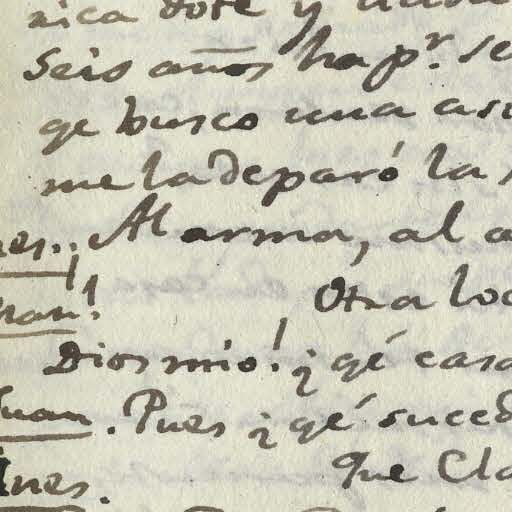 nica dote y
Seis años ha pr. se
qe busco una
me la deparó la
nes.. Al arma, al
Juan! Otra loc
Dios mio! ¿qé casa
Juan. Pues ¿qé suced
Ines. Que Cla